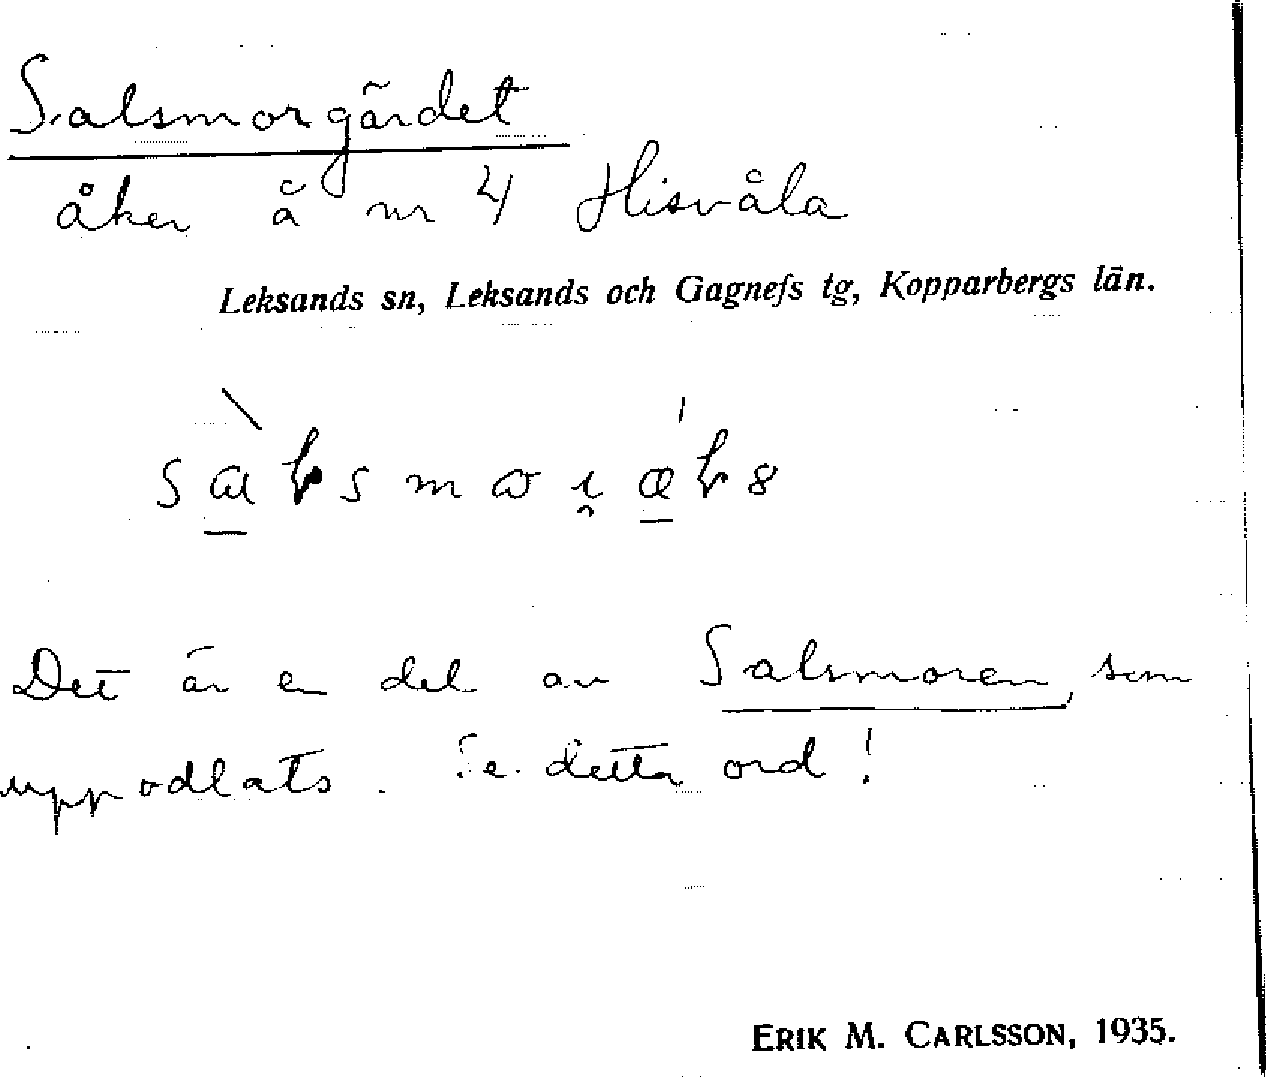 Salsmorgärdet
åker å nr 4 Hisvåla
Leksands sn, Leksands och Gagnefs tg, Kopparbergs län.
Det är en del av Salsmoren, som
uppodlats. Se detta ord!
ERIK M. CARLSSON, 1935.